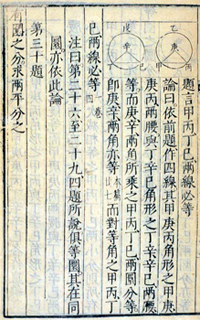 題言甲丙丁己兩線必等
論曰依前題作四線其甲庚丙角形之甲庚
庚丙兩腰與丁辛己角形之丁辛辛己兩腰
等而庚辛兩角所乘之甲丙丁己兩圜分等
即庚辛兩角亦等本篇廿七而對等角之甲丙丁
己兩線必等一卷四
注曰第二十六至二十九四題所說俱等圜其在同
圜亦依此論
第三十題
有圜之分求兩平分之